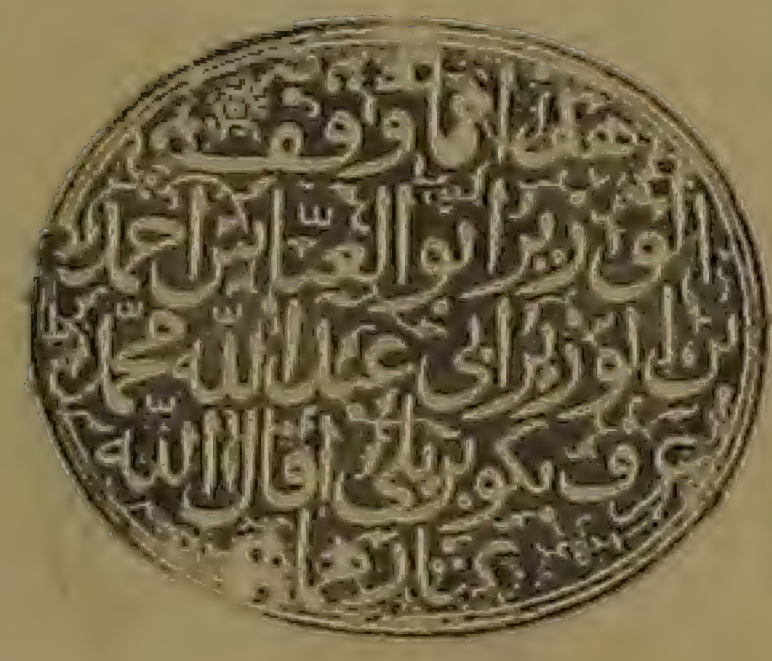 هذا ما وقفه
الوزير ابو العباس احمد
بن الوزير ابي عبد الله محمد
عرف بكوبريلي أقال الله
عثارهما